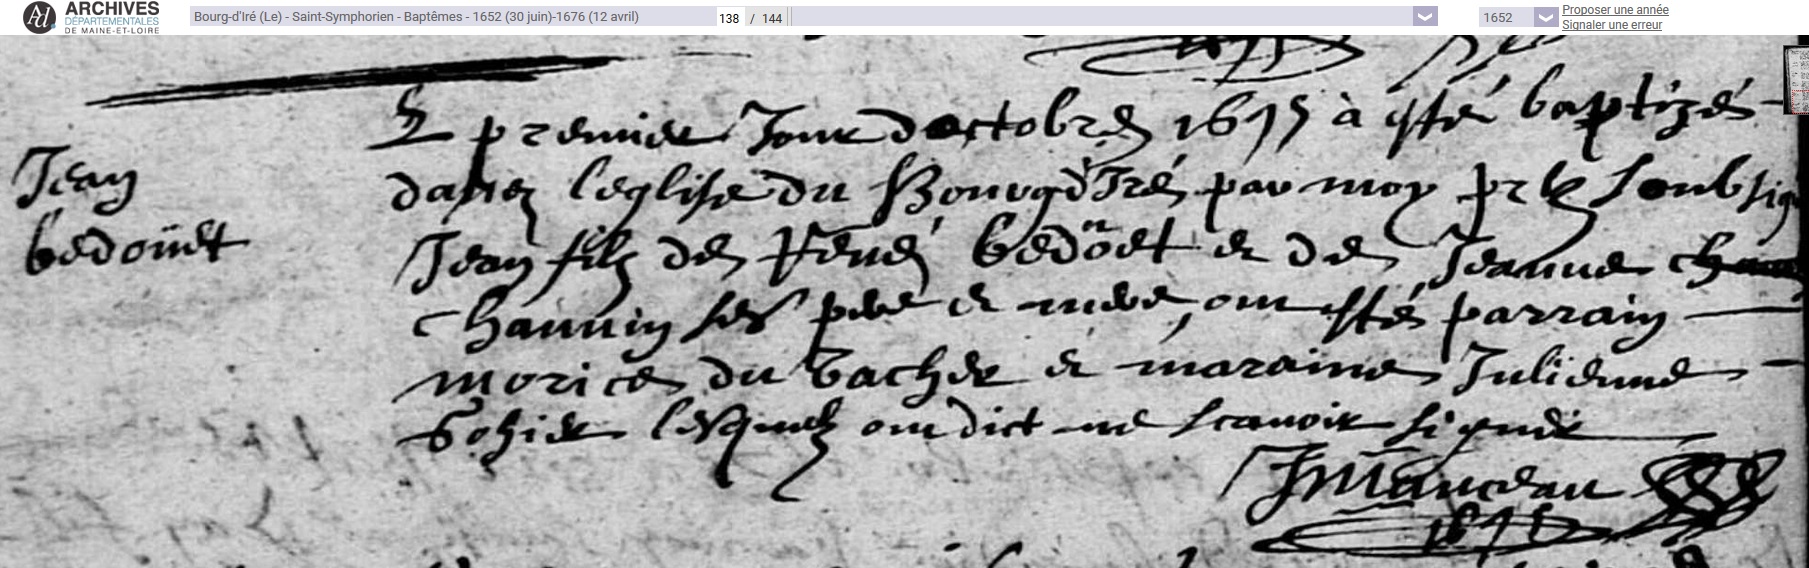 ARCHIVES
DÉPARTEMENTALES
DE MAINE-ET-LOIRE
Bourg-d'Iré (Le) - Saint-Symphorien - Baptêmes - 1652 (30 juin)-1676 (12 avril)
138 / 144
1652
Proposer une année
Signaler une erreur
Jean
bedoüet
Le premier Jour doctobre 1675 à esté baptizé
dans leglise du Bourgd'Iré par moy soubsig
Jean filz de René bedoet et de Jeanne
chauvin ses pere et mere, ont esté parrain
morice du vacher et maraine Julienne
Gohier lesquelz ont dict ne scavoir signer
Manceau
1675